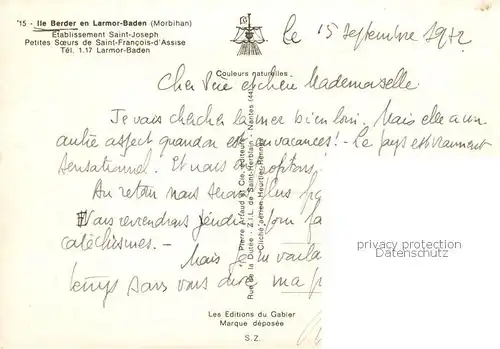 '15 - Ile Berder en Larmor-Baden (Morbihan)
Etablissement Saint-Joseph
Petites Sœurs de Saint-François-d'Assise
Tél. 1.17 Larmor-Baden
le 15 septembre 1972
Couleurs naturelles
Cher Père et chère Mademoiselle
Je vais chercher la mer bien loin. Mais elle a un
autre aspect quand on est en vacances! - Le pays est vraiment
sensationnel. Et nous en profitons
Au retour nous serons plus
Nous reviendrons
catéchismes. -
Mais je
temps sans vous dire ma
Pierre Artaud et Cie, éditeurs
Rue de la Dutée - Z.I.L. de Saint-Herblain - Nantes (44)
Cliché aérien Heurtier Rennes
privacy protection
Datenschutz
Les Editions du Gabier
Marque déposée
S.Z.